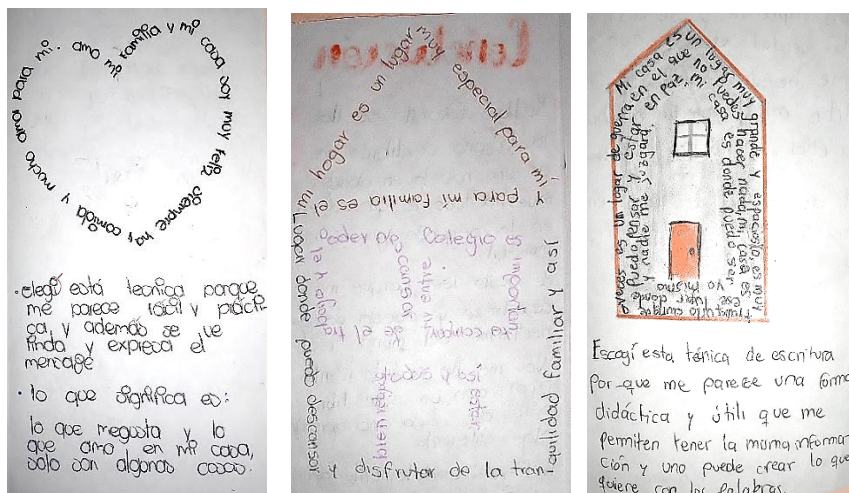 amo mi familia y mi casa soy muy feliz siempre hay comida y mucho amor para mi.
· elegí está tecnica porque
me parece facil y prácti
ca, y además se ve
linda y expresa el
mensage
· lo que significa es:
lo que megusta y lo
que amo en mi casa,
solo son algunas cosas.
Conclusión
mi hogar es un lugar muy especial para mí
y para mi familia es el
Lugar donde puedo descansar
y disfrutar de la tran-
quilidad familiar y así
poder descansar
Colegio es
importan
y entre
bien
Mi casa es un lugar muy grande y espacioso, es muy
tranquilo aunque
a veces es un lugar de guerra en el que no puedes
hacer nada, mi casa es
ese lugar donde
puedo pensar y estar en Paz, mi
casa es donde puedo ser
yo mismo
y nadie me juzgará.
Escogí esta ténica de escritura
por-que me parece una forma
didáctica y útili que me
permiten tener la misma informa-
ción y uno puede crear lo que
quiere con las palabras.